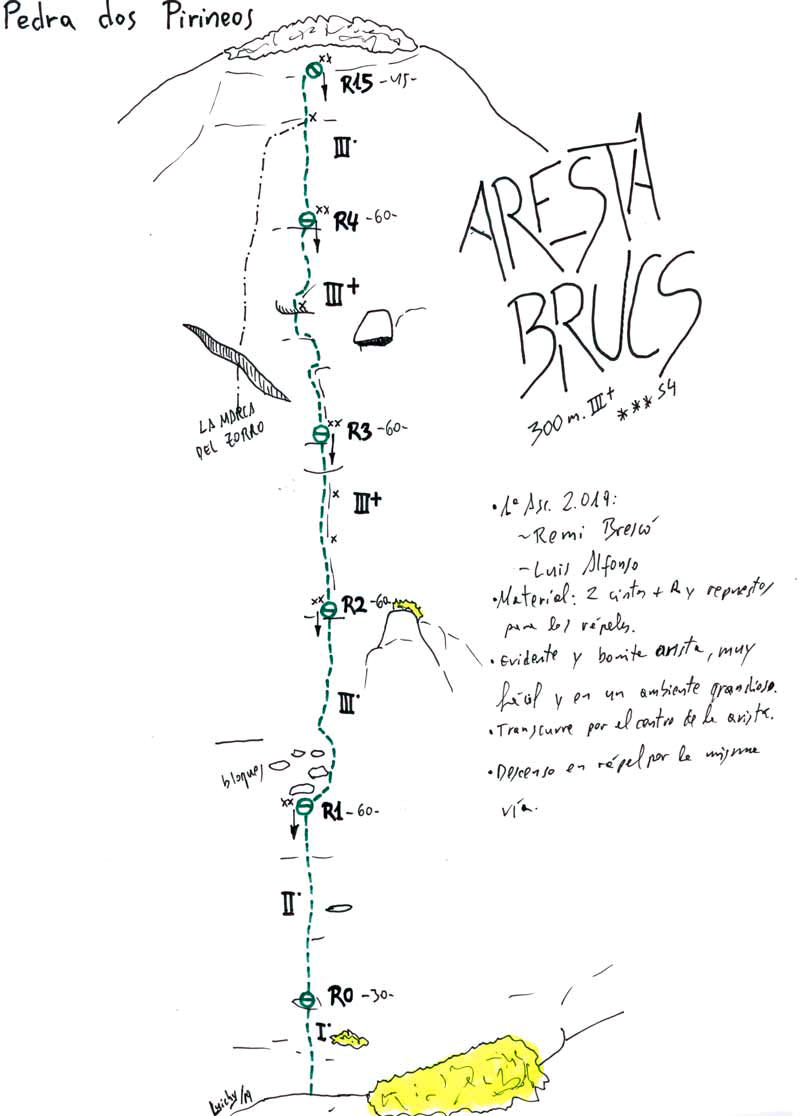 Pedra dos Pirineos
R15 -45-
III·
R4 -60-
III+
ARESTA
BRUCS
300 m. III+ *** S4
LA MARCA
DEL ZORRO
R3 -60-
III+
R2 -60-
III·
bloques
R1 -60-
II·
R0 -30-
I·
Luichy/19
• 1ª Asc. 2.019:
~ Remi Brescó
- Luis Alfonso
• Material: 2 cintas + R y repuestos
para los rápeles.
• Evidente y bonita arista, muy
fácil y en un ambiente grandioso.
• Transcurre por el centro de la arista.
• Descenso en rápel por la misma
vía.